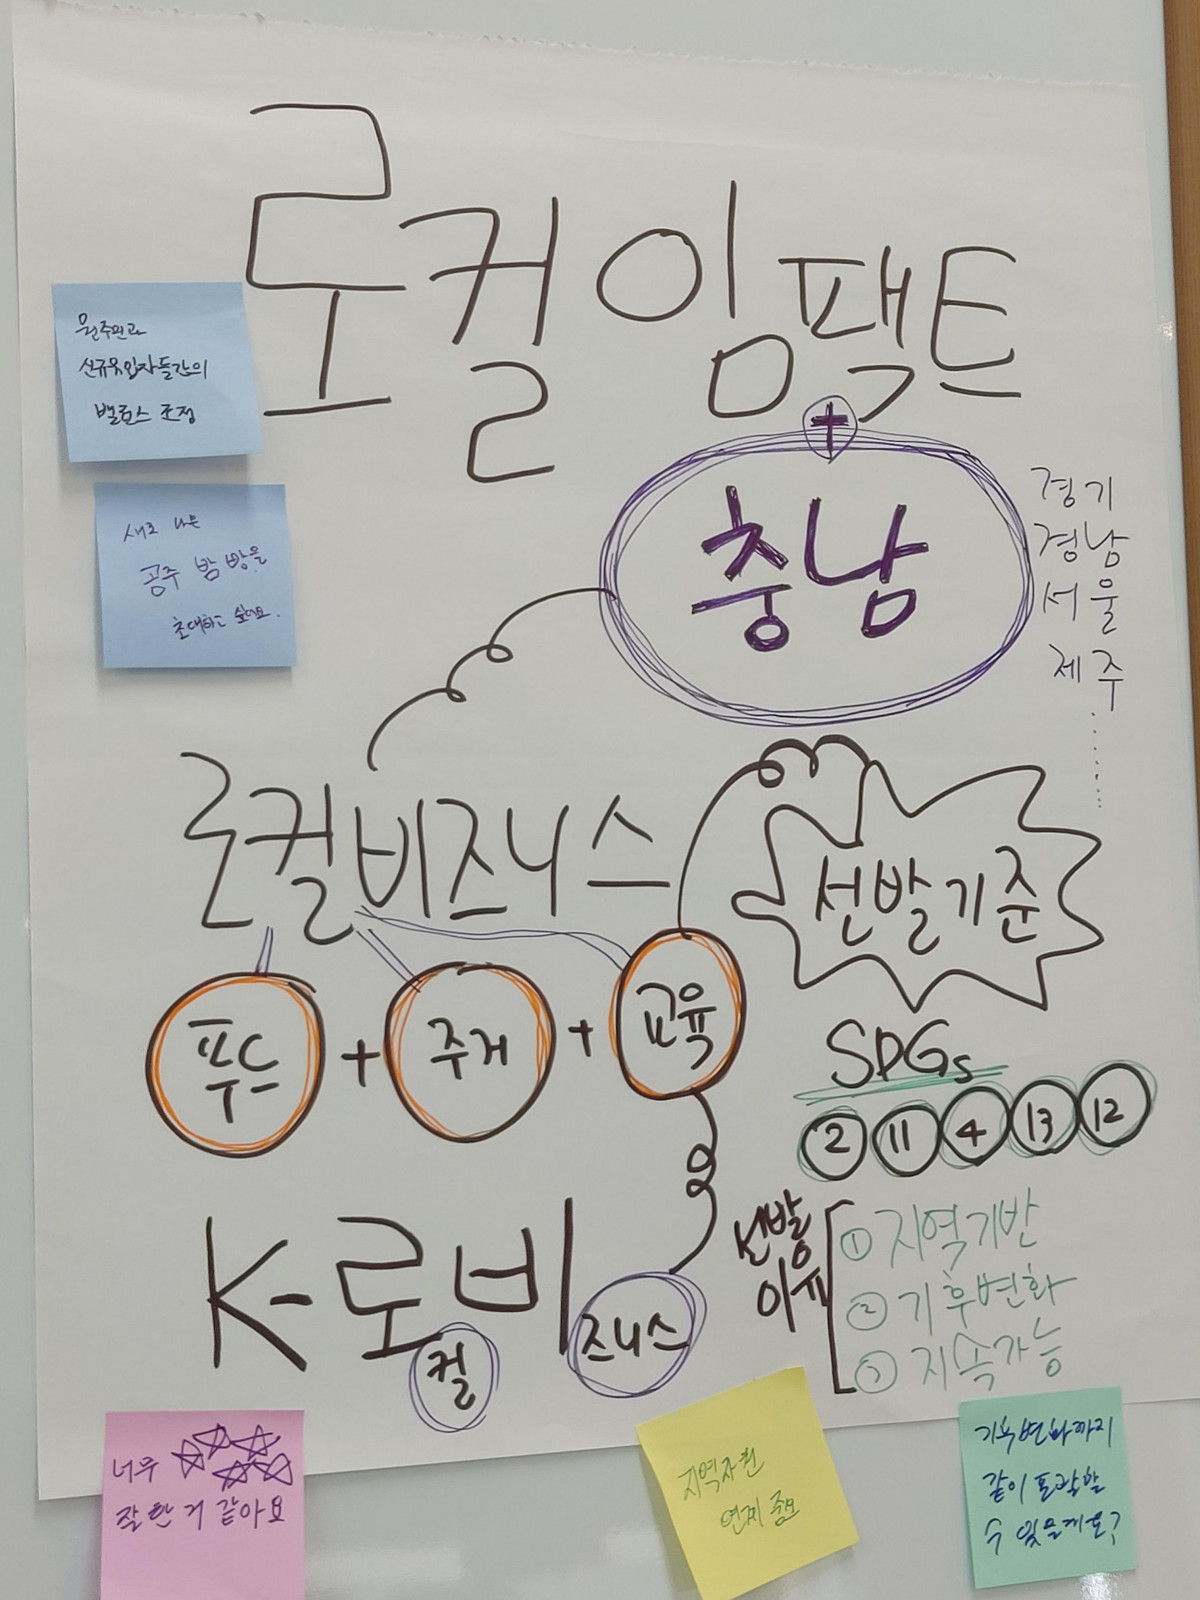 로컬임팩트
+
충남
경기
경남
서울
제주
원주민과
신규유입자들간의
밸런스 조정
새로
공주 밤빵을
초대하고 싶어요.
로컬비즈니스
선발기준
푸드 + 주거 + 교육
SDGs
2 11 4 13 12
K-로컬비즈니스
선발이유
① 지역기반
② 기후변화
③ 지속가능
너무
잘한거 같아요
지역자원
연계 중요
기후변화까지
같이 포괄할
수 있을까요?